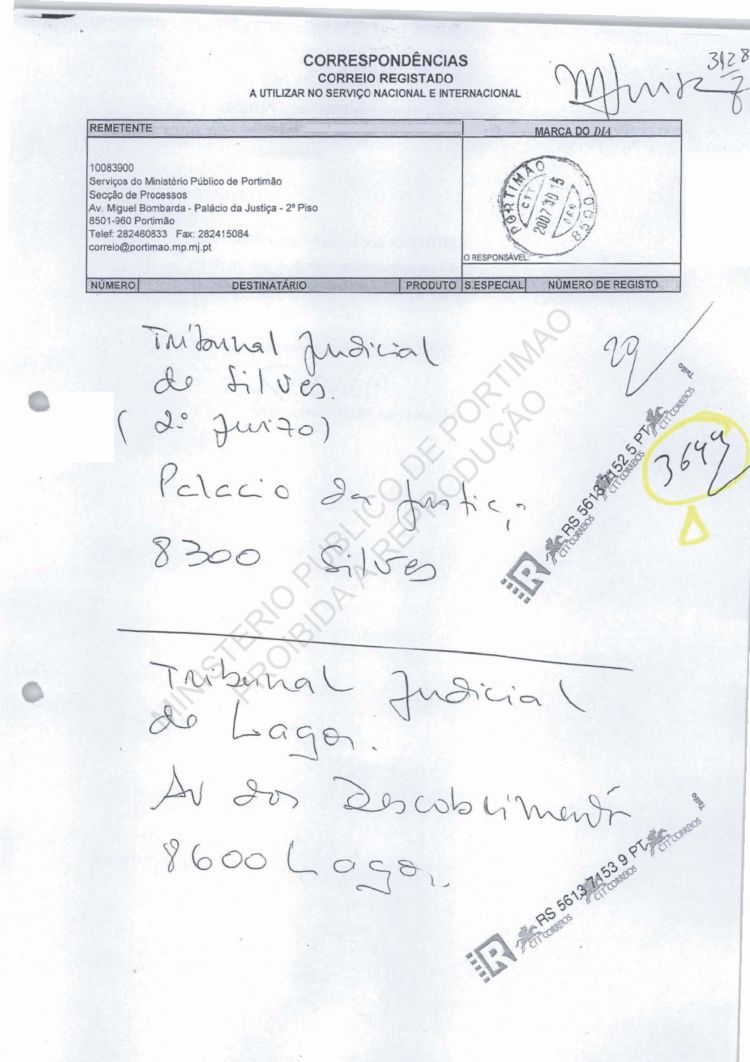 3128
CORRESPONDÊNCIAS
CORREIO REGISTADO
A UTILIZAR NO SERVIÇO NACIONAL E INTERNACIONAL
REMETENTE
MARCA DO DIA
10083900
Serviços do Ministério Público de Portimão
Secção de Processos
Av. Miguel Bombarda - Palácio da Justiça - 2º Piso
8501-960 Portimão
Telef: 282460833 Fax: 282415084
correio@portimao.mp.mj.pt
PORTIMÃO
CTT
2007 10 15
O RESPONSÁVEL
NÚMERO DESTINATÁRIO PRODUTO S.ESPECIAL NÚMERO DE REGISTO
Tribunal Judicial
de Silves.
(2º Juizo)
Palacio da Justiça
8300 Silves
29
Talão
R RS 5613 7152 5 PT
CTT CORREIOS
CTT CORREIOS
3649
MINISTÉRIO PUBLICO DE PORTIMAO
PROIBIDA A REPRODUÇÃO
Tribunal Judicial
de Lagos.
Av dos Descobrimentos
8600 Lagos.
Talão
R RS 5613 7153 9 PT
CTT CORREIOS
CTT CORREIOS